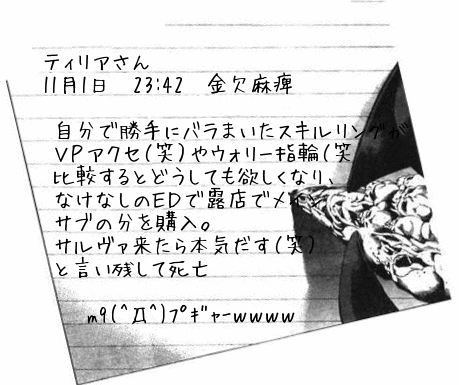 ティリアさん
11月1日　23:42　金欠麻痺
自分で勝手にバラまいたスキルリングが
VPアクセ(笑)やウォリー指輪(笑
比較するとどうしても欲しくなり、
なけなしのEDで露店でメイン
サブの分を購入。
サルヴァ来たら本気だす(笑)
と言い残して死亡
m9(^Д^)プギャーwwww